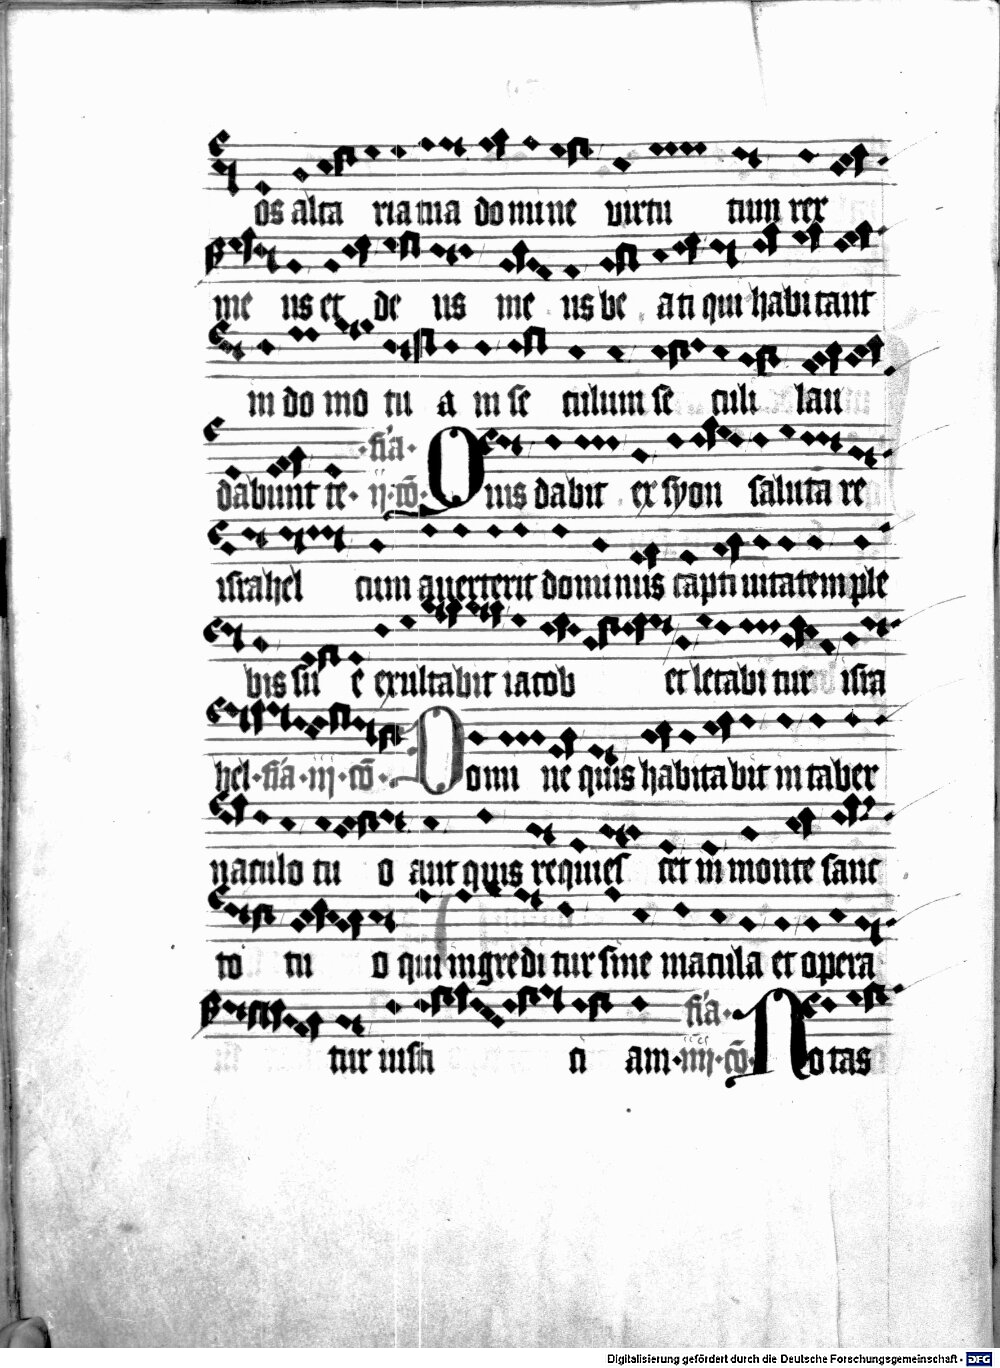 os altaria tua domine virtutum rex
meus et deus meus beati qui habitant
in domo tua in seculum seculi lau
dabunt te · fīa · ij · cō · Quis dabit ex syon salutare
israhel cum auerterit dominus captiuitatem ple
bis sue exultabit iacob et letabitur isra
hel · fīa · iij · cō · Domine quis habitabit in taber
naculo tuo aut quis requiescet in monte sanc
to tuo qui ingreditur sine macula et opera
tur iusticiam · fīa · iiij · cō · Notas
Digitalisierung gefördert durch die Deutsche Forschungsgemeinschaft - DFG